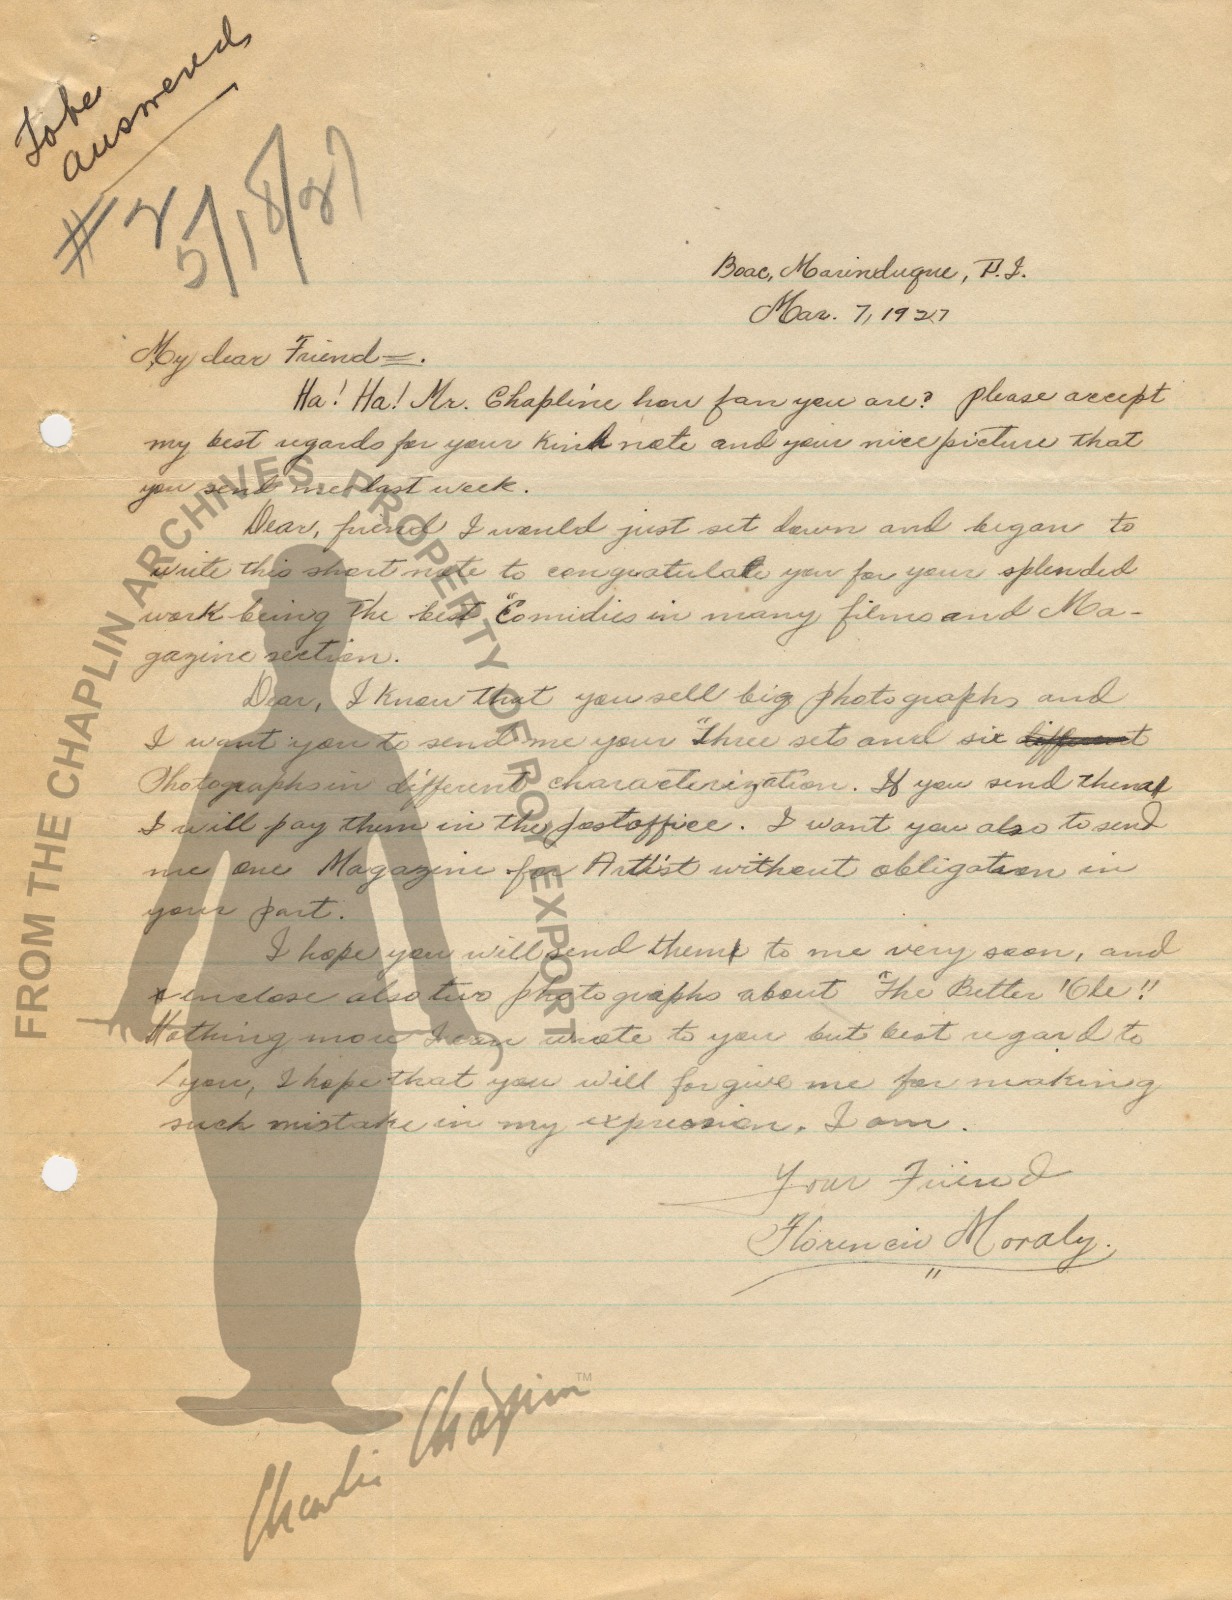 To be
answered
#2
5/18/27
Boac, Marinduque, P.I.
Mar. 7, 1927
My dear Friend=.
Ha! Ha! Mr. Chapline how fan you are? please accept
my best regards for your kind note and your nice picture that
you send me last week.
Dear, friend I would just set down and began to
write this short note to congratulate you for your splended
work being the best "Comidies in many films and Ma-
gazine section.
Dear, I know that you sell big photographs and
I want you to send me your "three sets and six different
Photographs in different characterization. If you send them
I will pay them in the postoffice. I want you also to send
me one Magazine for Artist without obligation in
your part.
I hope you will send them to me very soon, and
enclose also two photographs about "The Better 'Ole!!
Nothing more I can wrote to you but best regard to
you, I hope that you will forgive me for making
such mistake in my expression. I am.
Your Friend
Florencio Moraly.
FROM THE CHAPLIN ARCHIVES. PROPERTY OF ROY EXPORT
Charlie Chaplin™